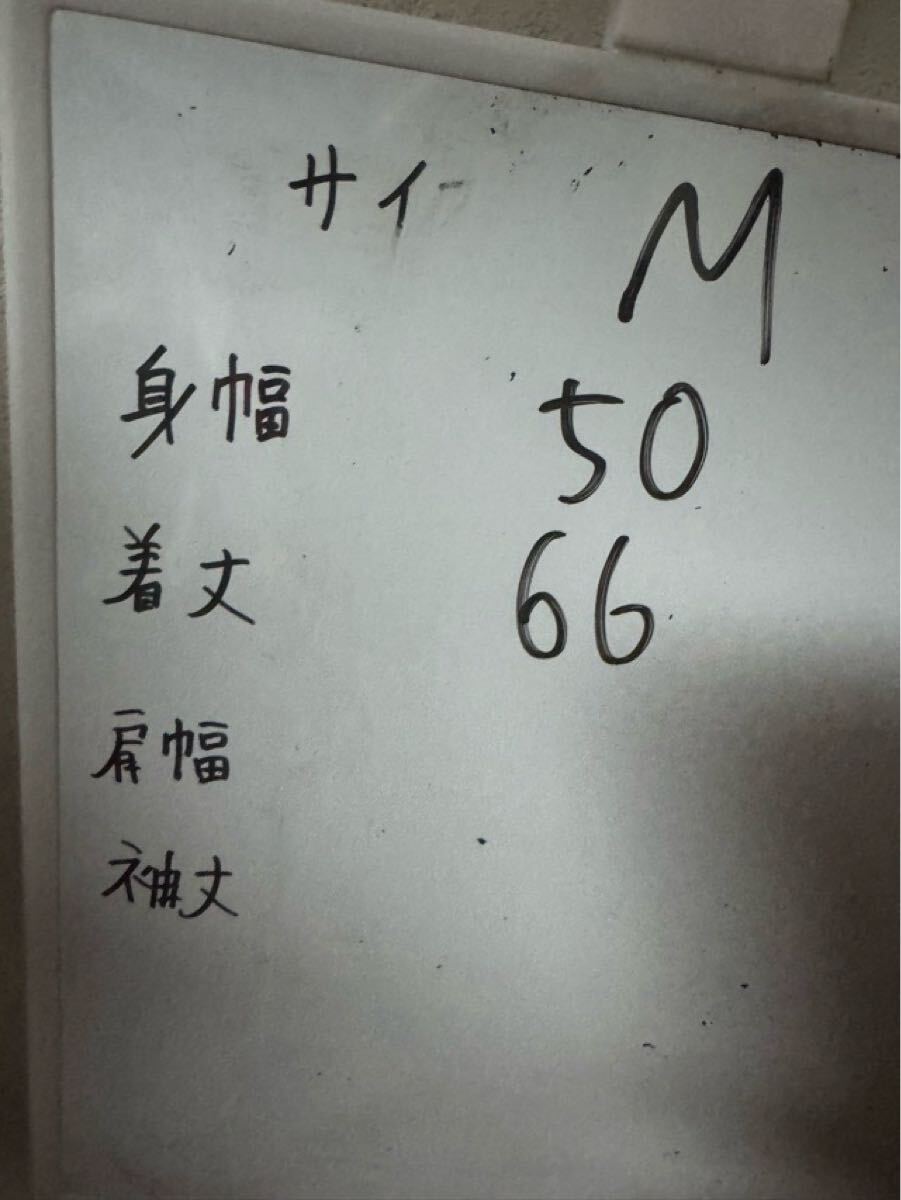 サイ M
身幅 50
着丈 66
肩幅
袖丈